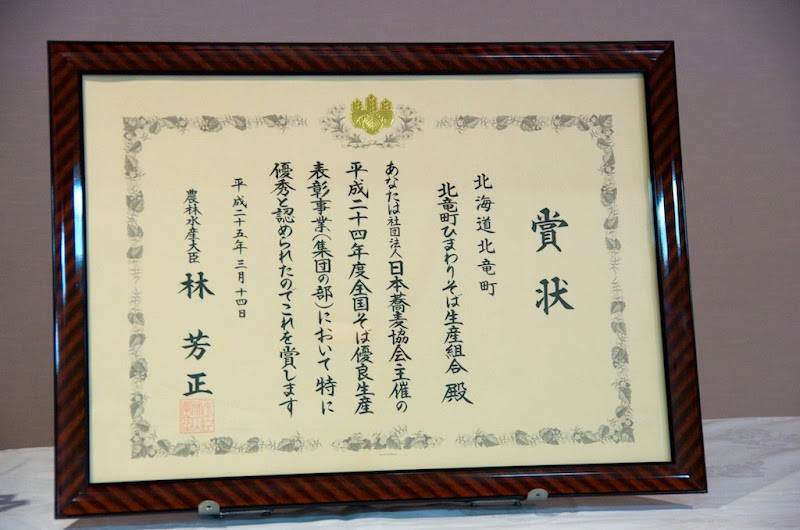 賞状
北海道北竜町
北竜町ひまわりそば生産組合 殿
あなたは社団法人日本蕎麦協会主催の
平成二十四年度全国そば優良生産
表彰事業(集団の部)において特に
優秀と認められたのでこれを賞します
平成二十五年三月十四日
農林水産大臣 林 芳正